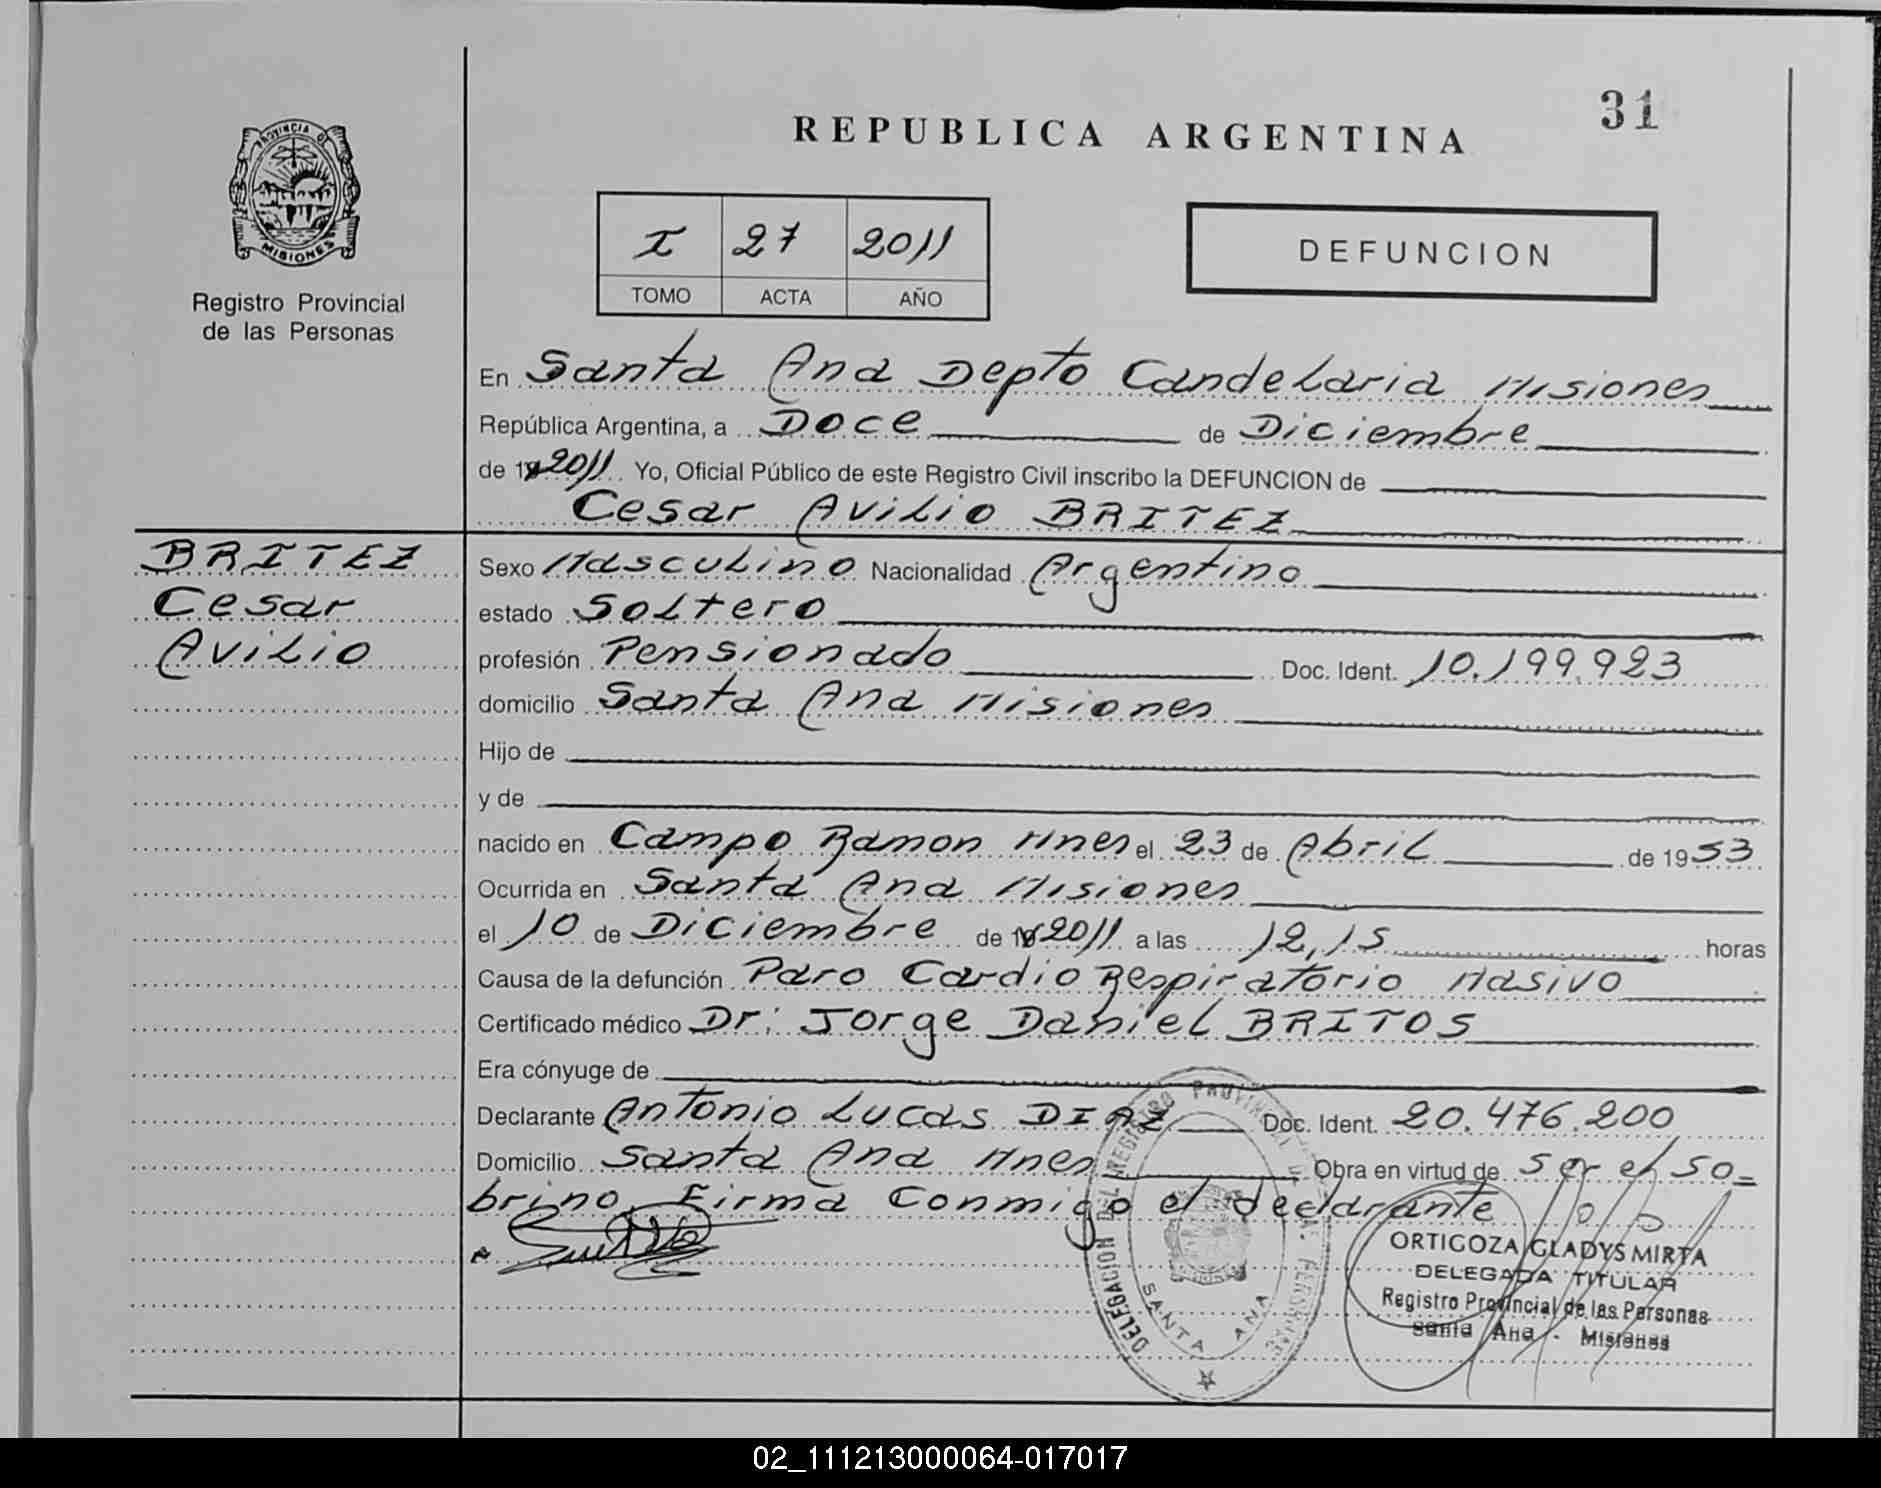 31
REPUBLICA ARGENTINA
PROVINCIA DE
MISIONES
Registro Provincial
de las Personas
I 27 2011
TOMO ACTA AÑO
DEFUNCION
En Santa Ana Depto Candelaria Misiones
República Argentina, a Doce de Diciembre
de 19 2011 Yo, Oficial Público de este Registro Civil inscribo la DEFUNCION de
Cesar Avilio BRITEZ
BRITEZ
Cesar
Avilio
Sexo Masculino Nacionalidad Argentino
estado Soltero
profesión Pensionado Doc. Ident. 10.199.923
domicilio Santa Ana Misiones
Hijo de
y de
nacido en Campo Ramon Mnes el 23 de Abril de 1953
Ocurrida en Santa Ana Misiones
el 10 de Diciembre de 19 2011 a las 12,15 horas
Causa de la defunción Paro Cardio Respiratorio Masivo
Certificado médico Dr: Jorge Daniel BRITOS
Era cónyuge de
Declarante Antonio Lucas DIAZ Doc. Ident. 20.476.200
Domicilio Santa Ana Mnes Obra en virtud de Ser el so=
brino. Firma Conmigo el declarante
DELEGACION DEL REGISTRO PROVINCIAL DE LAS PERSONAS
SANTA ANA
ORTIGOZA GLADYS MIRTA
DELEGADA TITULAR
Registro Provincial de las Personas
Santa Ana - Misiones
02_111213000064-017017